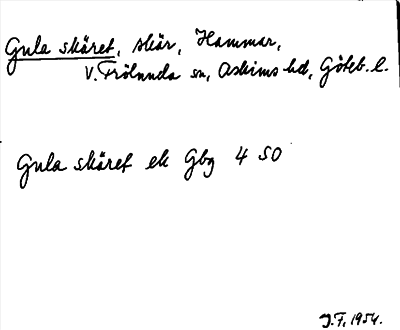 Gula skäret, skär, Hammar,
V. Frölunda sn, Askims hd, Göteb. l.
Gula skäret ek Gbg 4 SO
J.F. 1954.